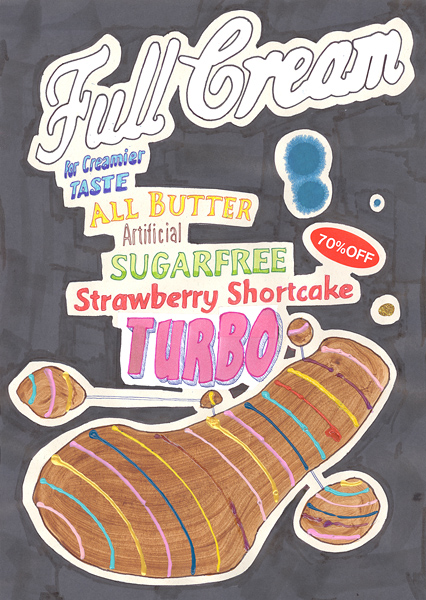 Full Cream
For Creamier
TASTE
ALL BUTTER
Artificial
SUGARFREE
70%OFF
Strawberry Shortcake
TURBO